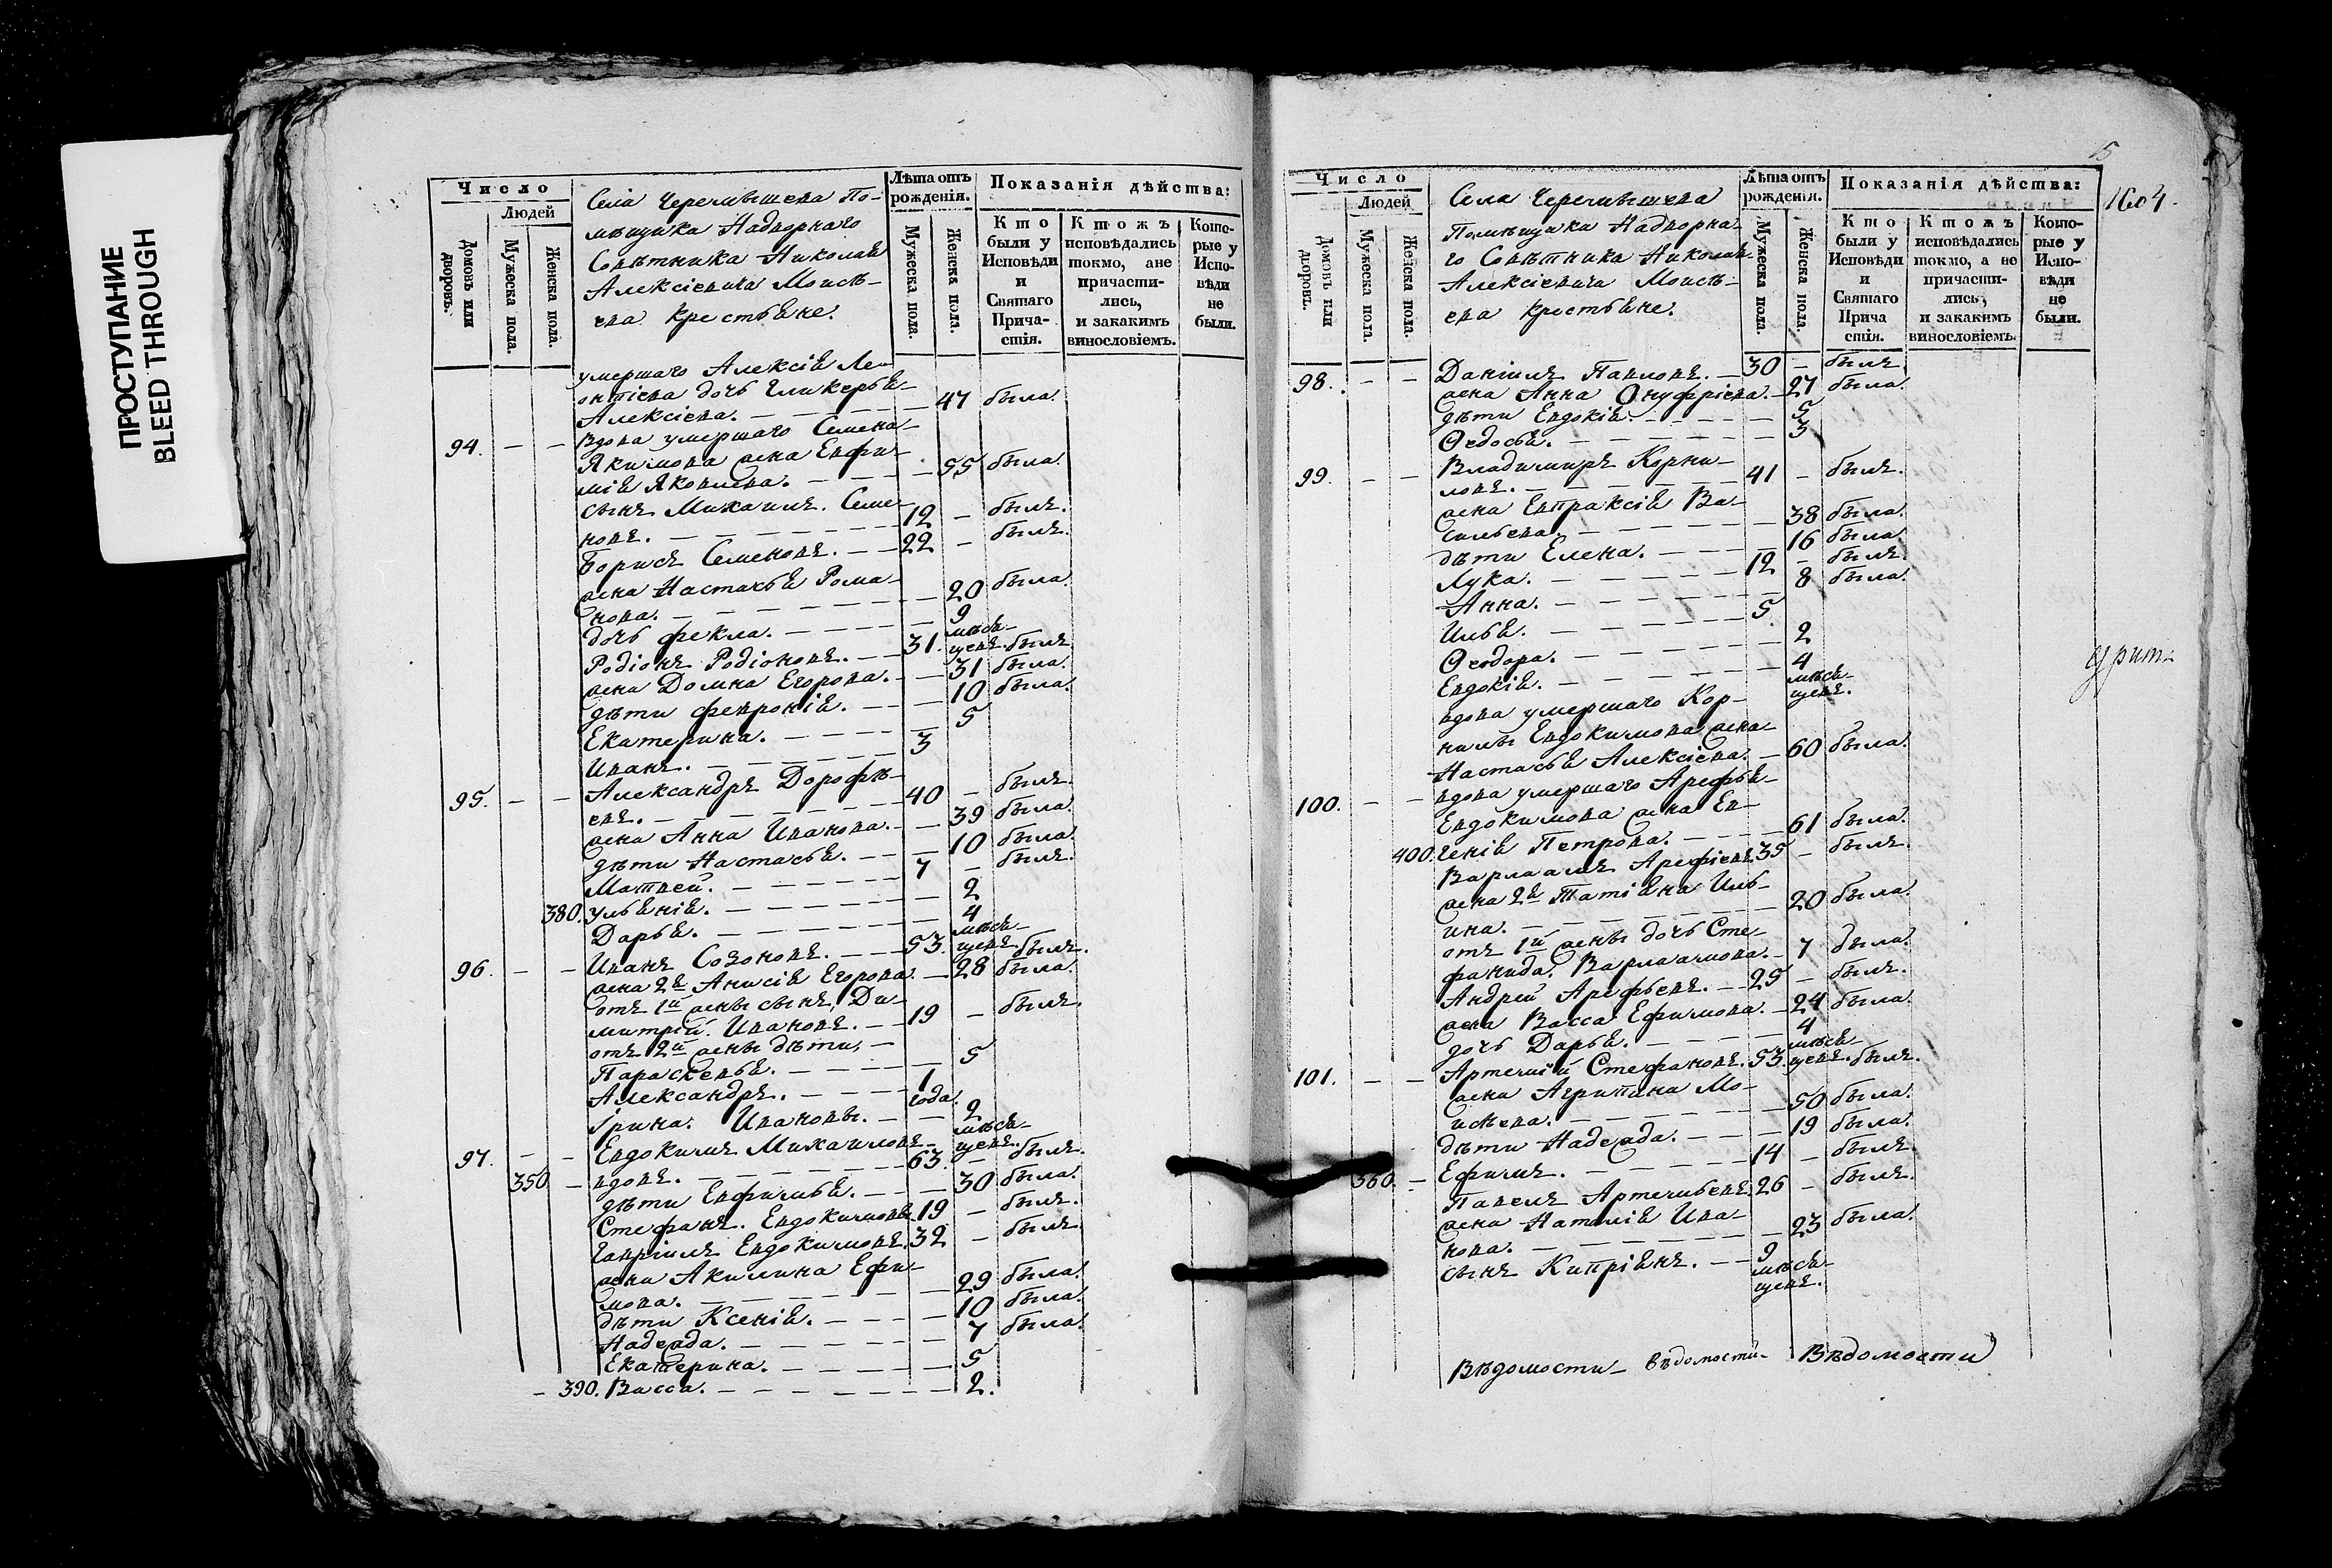 ПРОСТУПАНИЕ
BLEED THROUGH
Число
Людей
Домовъ или дворовъ.
Мужеска пола.
Женска пола.
Села Черемышева По-
мѣщика Надворнаго
Совѣтника Николая
Алексіевича Моисѣ-
ева крестьяне.
Лѣта отъ рожденія.
Мужеска пола.
Женска пола.
Показанія дѣйства:
Кто были у Исповѣди и Святаго Прича-стія.
Ктожъ исповѣдались токмо, ане причасти-лись, и закакимъ винословіемъ.
Кото-рые у Испо-вѣди не были.
умершаго Алексія Ле-
онтіева дочь Гликерья
Алексіева. 47 была.
94. — — Вдова умершаго Семена
Якимова жена Евфи-
мія Яковлева. — 55 была.
сынъ Михаилъ Семе-
новъ. 12 — былъ.
Борисъ Семеновъ. 22 — былъ.
жена Настасья Рома-
нова. — 20 была.
дочь Фекла. — 9 мѣся-
Родіонъ Родіоновъ. 31. цевъ. былъ
жена Домна Егорова. — 31 была.
дѣти Февронія. — 10 была.
Екатерина. — 5
Иванъ. 3
95. — — Александръ Дорофѣ-
евъ. 40 — былъ.
жена Анна Иванова. — 39 была.
дѣти Настасья. — 10 была.
Матвей. 7 — былъ.
380. Ульянія. — 2
Дарья. — 4 мѣся-
96. — — Иванъ Созоновъ. 53. цевъ. былъ.
жена 2я Анисія Егорова. — 28 была.
отъ 1й жены сынъ, Ди-
митрій Ивановъ. 19 — былъ.
отъ 2й жены дѣти,
Параскевья. — 5
Александръ. 1 года.
Ірина. Ивановы. — 2 мѣся-
97. — — Евдокимъ Михаиловъ цевъ.
350. — вдовъ. 63. — былъ.
дѣти Евфимья. — 30 была.
Стефанъ. Евдокимовы 19 — былъ.
Гавріилъ Евдокимовъ. 32 — былъ.
жена Акилина Ефи-
мова. — 29 была.
дѣти Ксенія. — 10 была.
Надежда. — 7 была.
Екатерина. — 5
— 390. Васса. — 2.
15
1604.
Число
Людей
Домовъ или дворовъ.
Мужеска пола.
Женска пола.
Села Черемышева
Помѣщика Надворна-
го Совѣтника Николая
Алексіевича Моисѣ-
ева крестьяне.
Лѣта отъ рожденія.
Мужеска пола.
Женска пола.
Показанія дѣйства:
Кто были у Исповѣди и Святаго Прича стія.
Ктожъ исповѣдались токмо, а не причасти-лись, и закакимъ винословіемъ.
Кото-рые у Испо-вѣди не были.
98. — — Даніилъ Павловъ. 30 — былъ
жена Анна Онуфріева. — 27 была.
дѣти Евдокія. — 5
Ѳедосья. — 3
99. — — Владимиръ Корни-
ловъ. 41 — былъ.
жена Евпраксія Ва-
сильева. — 38 была.
дѣти Елена. — 16 была.
Лука. 12 — былъ.
Анна. — 8 была.
Илья. 5
Ѳеодора. — 2
Евдокія. — 4 мѣся-
цевъ.
вдова умершаго Кор-
нилы Евдокимова жена
Настасья Алексіева. — 60 была.
100. — — вдова умершаго Арефья
Евдокимова жена Ев-
400. генія Петрова. — 61 была.
Варлаамъ Арефіевъ 35 — былъ.
жена 2я Татіяна Иль-
ина. — 20 была.
отъ 1й жены дочь Сте-
фанида Варлаамова. — 7 была.
Андрей Арефьевъ. 25 — былъ.
жена Васса Ефимова. — 24 была.
дочь Дарья. — 4 мѣся-
101. — — Артемій Стефановъ. 53. цевъ. былъ.
жена Агрипина Мо-
исѣева. — 50 была.
дѣти Надежда. — 19 была.
360. — Ефимъ. 14 — былъ
Павелъ Артемьевъ. 26 — былъ.
жена Наталія Ива-
нова. — 23 была.
сынъ Кипріянъ. 9 мѣся-
цевъ.
Вѣдомости вѣдомости Вѣдомости